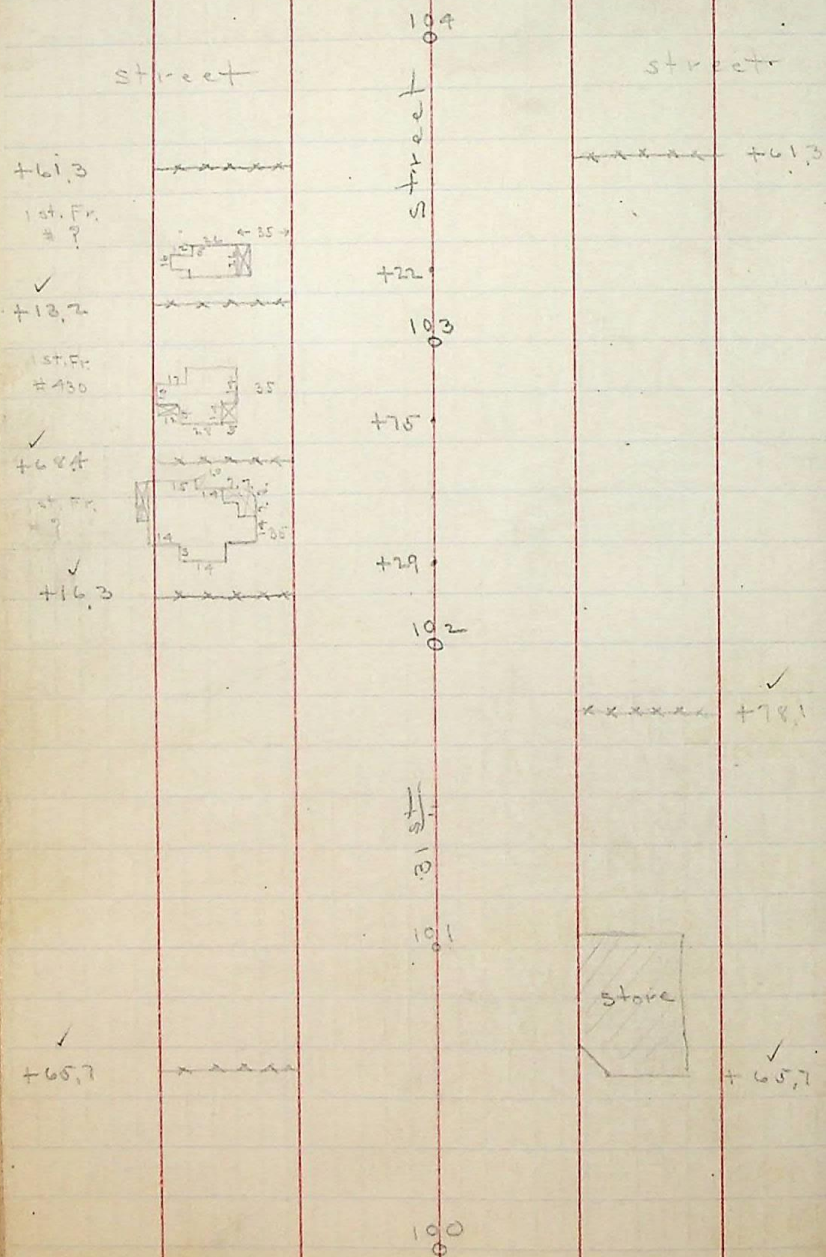 104
street
street
street
+61.3
+61.3
1 st. Fr.
# ?
12
36
← 35 →
+22
✓
+13.2
103
1 st. Fr.
# 430
12
35
28
+75
✓
+68.4
1 st. Fr.
# ?
15
14
14
3
14
35
+29
✓
+16.3
102
✓
+78.1
31 st.
101
store
✓
+65.7
✓
+65.7
100